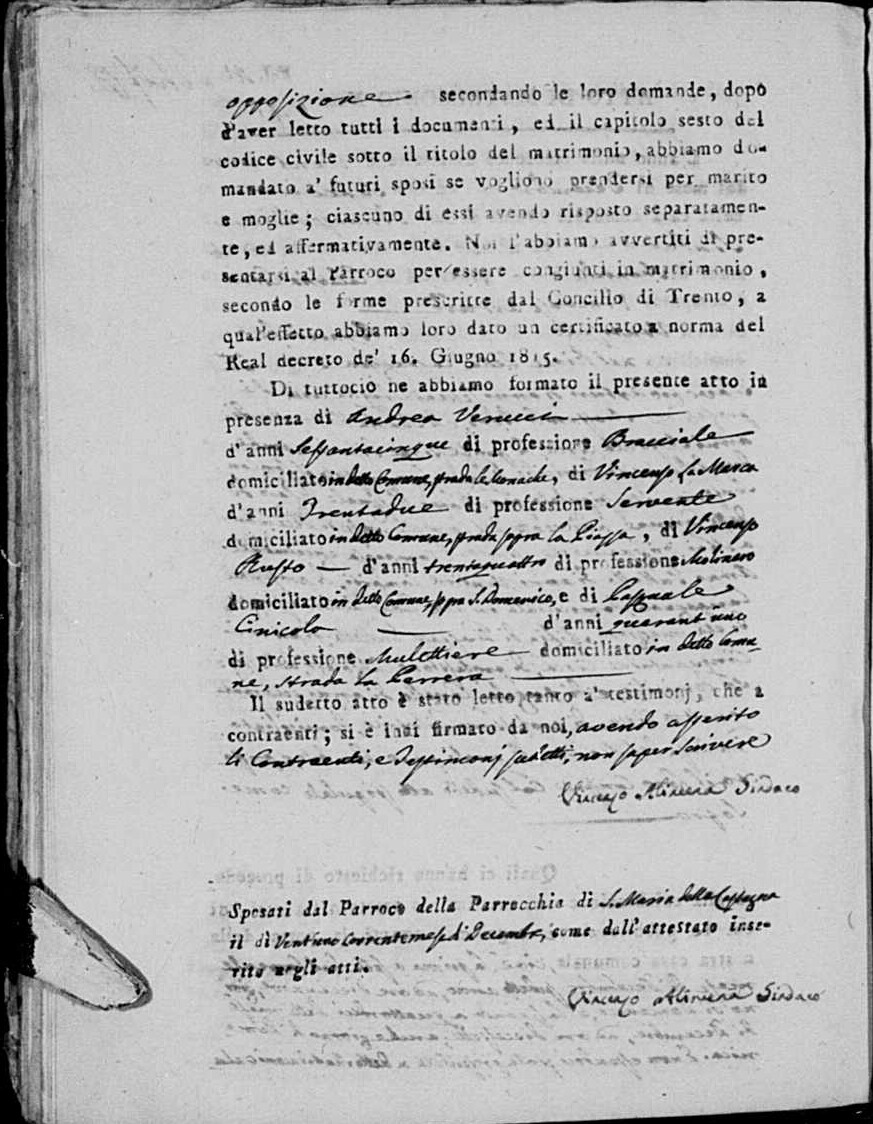 opposizione secondando le loro domande, dopo
d'aver letto tutti i documenti, ed il capitolo sesto del
codice civile sotto il titolo del matrimonio, abbiamo do-
mandato a' futuri sposi se vogliono prendersi per marito
e moglie; ciascuno di essi avendo risposto separatamen-
te, ed affermativamente. Noi l'abbiamo avvertiti di pre-
sentarsi al Parroco per essere congiunti in matrimonio,
secondo le forme prescritte dal Concilio di Trento, a
qual'effetto abbiamo loro dato un certificato a norma del
Real decreto de' 16. Giugno 1815.
Di tuttociò ne abbiamo formato il presente atto in
presenza di Andrea
d'anni Sessantacinque di professione Bracciale
domiciliato in detto Comune, strada le Monache, di Vincenzo La Marca
d'anni Trentadue di professione Servente
domiciliato in detto Comune, strada sopra la Piazza, di Vincenzo
Russo — d'anni trentaquattro di professione Molinaro
domiciliato in detto Comune, sopra S. Domenico, e di Pasquale
Cinicolo d'anni quarant'uno
di professione Mulettiere domiciliato in detto Comu-
ne, strada La Carrera
Il sudetto atto è stato letto tanto a' testimonj, che a
contraenti; si è indi firmato da noi, avendo asserito
li Contraenti, e Testimonj sudetti, non saper scrivere
Vincenzo Sindaco
Sposati dal Parroco della Parrocchia di S. Maria della
il dì Ventuno Corrente mese d' Decembre, come dall'attestato inse-
rito negli atti.
Vincenzo Sindaco